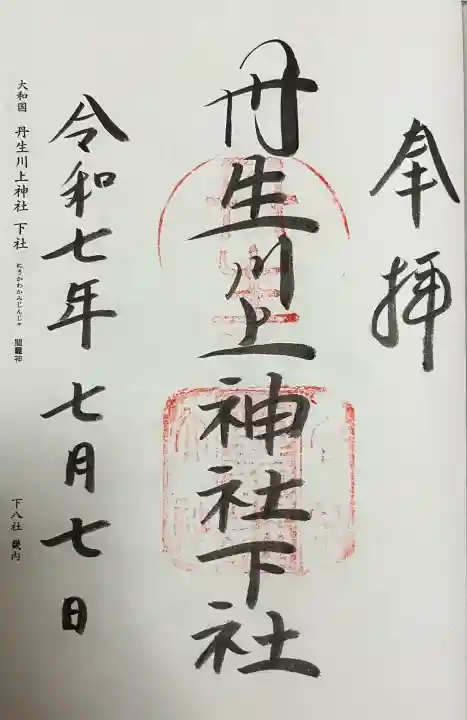 奉拝
丹生川上神社下社
令和七年七月七日
大和国 丹生川上神社 下社
にうかわかみじんじゃ
闇龗神
下八社 畿内